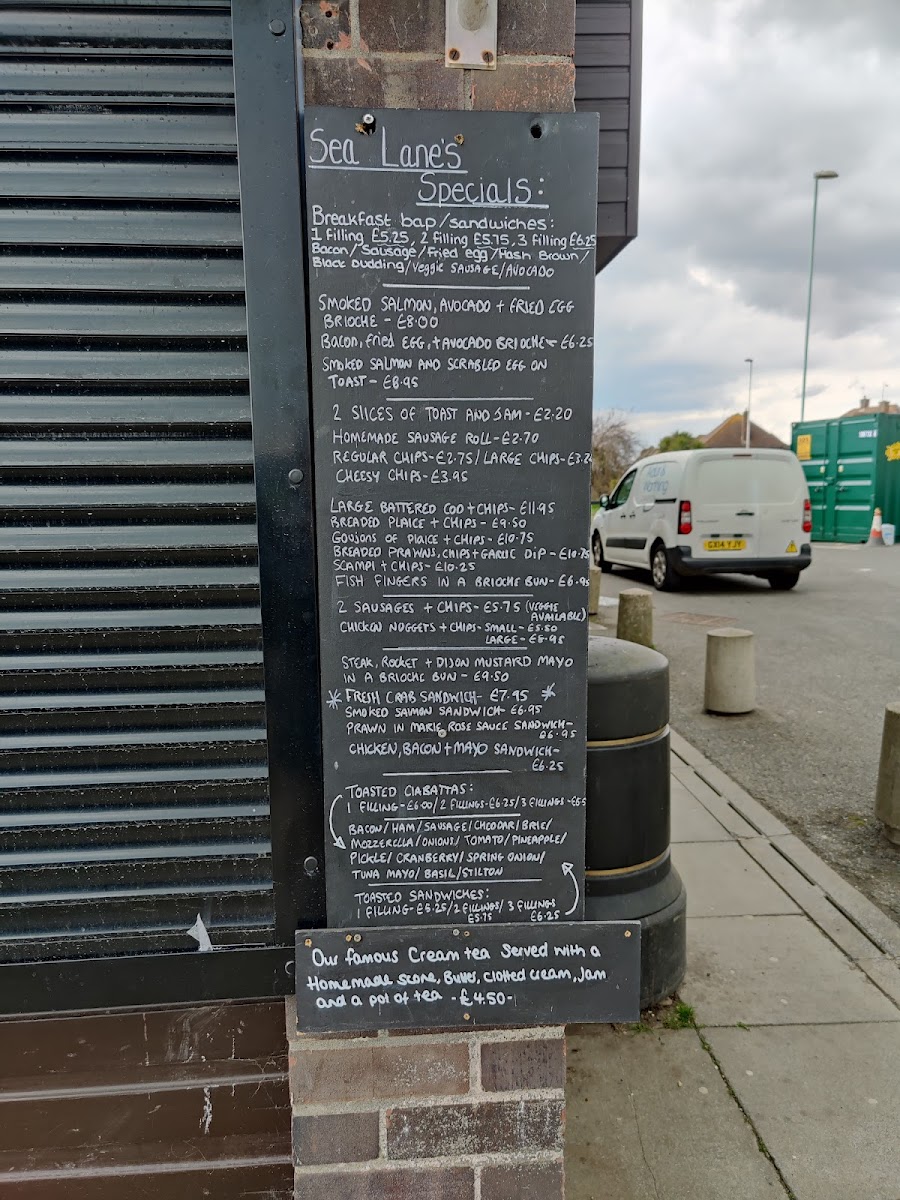 Sea Lane's
Specials:
Breakfast bap/sandwiches:
1 filling £5.25, 2 filling £5.75, 3 filling £6.25
Bacon/Sausage/Fried egg/Hash Brown/
Black Pudding/Veggie SAUSAGE/AVOCADO
SMOKED SALMON, AVOCADO + FRIED EGG
BRIOCHE - £8.00
Bacon, Fried EGG, + AVOCADO BRIOCHE - £6.25
SMOKED SALMON AND SCRABLED EGG ON
TOAST - £8.95
2 SLICES OF TOAST AND JAM - £2.20
HOMEMADE SAUSAGE ROLL - £2.70
REGULAR CHIPS - £2.75 / LARGE CHIPS - £3.2
CHEESY CHIPS - £3.95
LARGE BATTERED COD + CHIPS - £11.95
BREADED PLAICE + CHIPS - £9.50
GOUJONS OF PLAICE + CHIPS - £10.75
BREADED PRAWNS, CHIPS + GARLIC DIP - £10.75
SCAMPI + CHIPS - £10.25
FISH FINGERS IN A BRIOCHE BUN - £6.95
2 SAUSAGES + CHIPS - £5.75 (VEGGIE
AVAILABLE)
CHICKEN NUGGETS + CHIPS - SMALL - £5.50
LARGE - £8.95
STEAK, ROCKET + DIJON MUSTARD MAYO
IN A BRIOCHE BUN - £9.50
* FRESH CRAB SANDWICH - £7.95 *
SMOKED SALMON SANDWICH - £6.95
PRAWN IN MARIE ROSE SAUCE SANDWICH -
£6.95
CHICKEN, BACON + MAYO SANDWICH -
£6.25
TOASTED CIABATTAS:
1 FILLING - £6.00 / 2 FILLINGS - £6.25 / 3 FILLINGS -
BACON / HAM / SAUSAGE / CHEDDAR / BRIE /
MOZZERELLA / ONIONS / TOMATO / PINEAPPLE /
PICKLE / CRANBERRY / SPRING ONION /
TUNA MAYO / BASIL / STILTON
TOASTED SANDWICHES:
1 FILLING - £5.25 / 2 FILLINGS / 3 FILLINGS
£5.75 £6.25
Our famous Cream tea Served with a
Homemade scone, Butter, clotted cream, Jam
and a pot of tea - £4.50 -
GX14 YJY